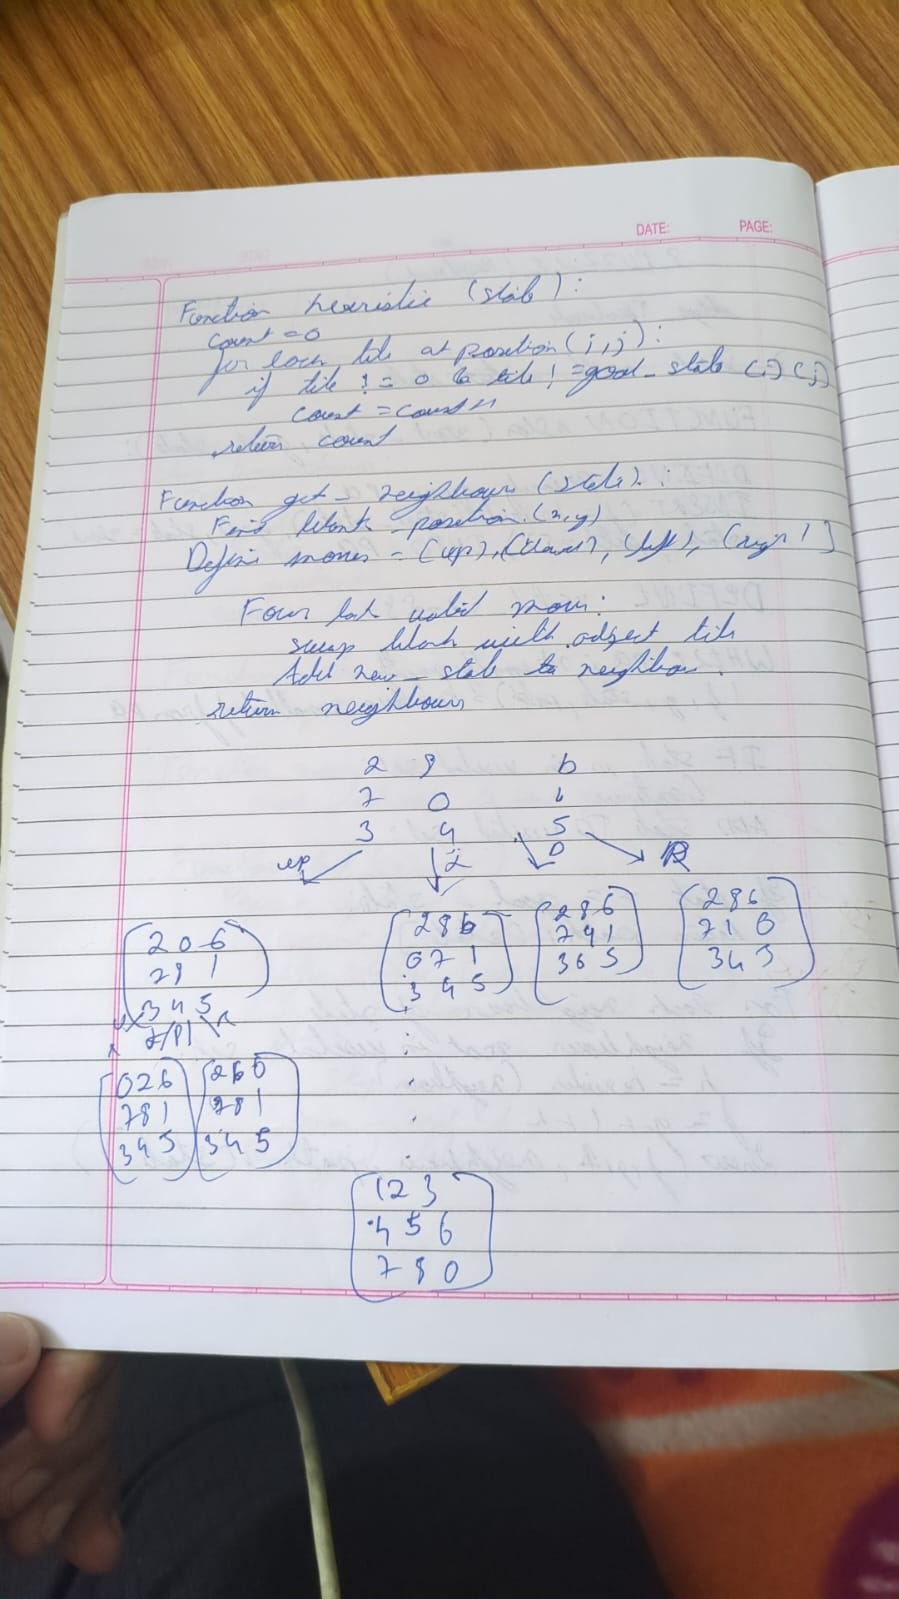 DATE: PAGE:
Function heuristic (state):
count = 0
for each tile at position (i,j):
if tile != 0 & tile != goal_state (i) (j)
count = count+1
return count
Function get_neighbours (state):
Find blank position (x,y)
Define moves = (up), (down), (left), (right)
valid move:
swap blank with adject tile
Add new_state to neighbour.
return neighbours
2 8 6
7 0 1
3 4 5
up L D R
2 0 6
7 8 1
3 4 5
2 8 6
0 7 1
3 4 5
2 8 6
7 4 1
3 0 5
2 8 6
7 1 0
3 4 5
0 2 6
7 8 1
3 4 5
2 6 0
7 8 1
3 4 5
1 2 3
4 5 6
7 8 0